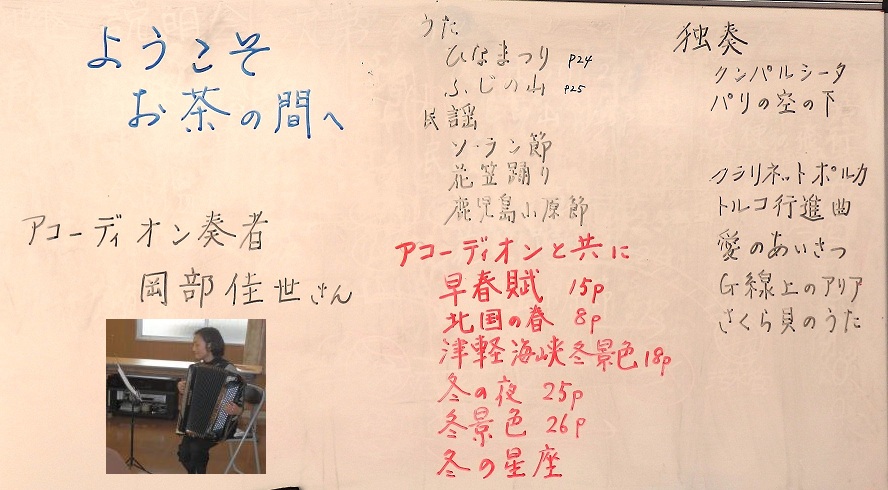 ようこそ
お茶の間へ
アコーディオン奏者
岡部佳世さん
うた
ひなまつり P24
ふじの山 P25
民謡
ソーラン節
花笠踊り
鹿児島小原節
アコーディオンと共に
早春賦 15p
北国の春 8p
津軽海峡冬景色 18p
冬の夜 25p
冬景色 26p
冬の星座
独奏
クンパルシータ
パリの空の下
クラリネットポルカ
トルコ行進曲
愛のあいさつ
G線上のアリア
さくら貝のうた